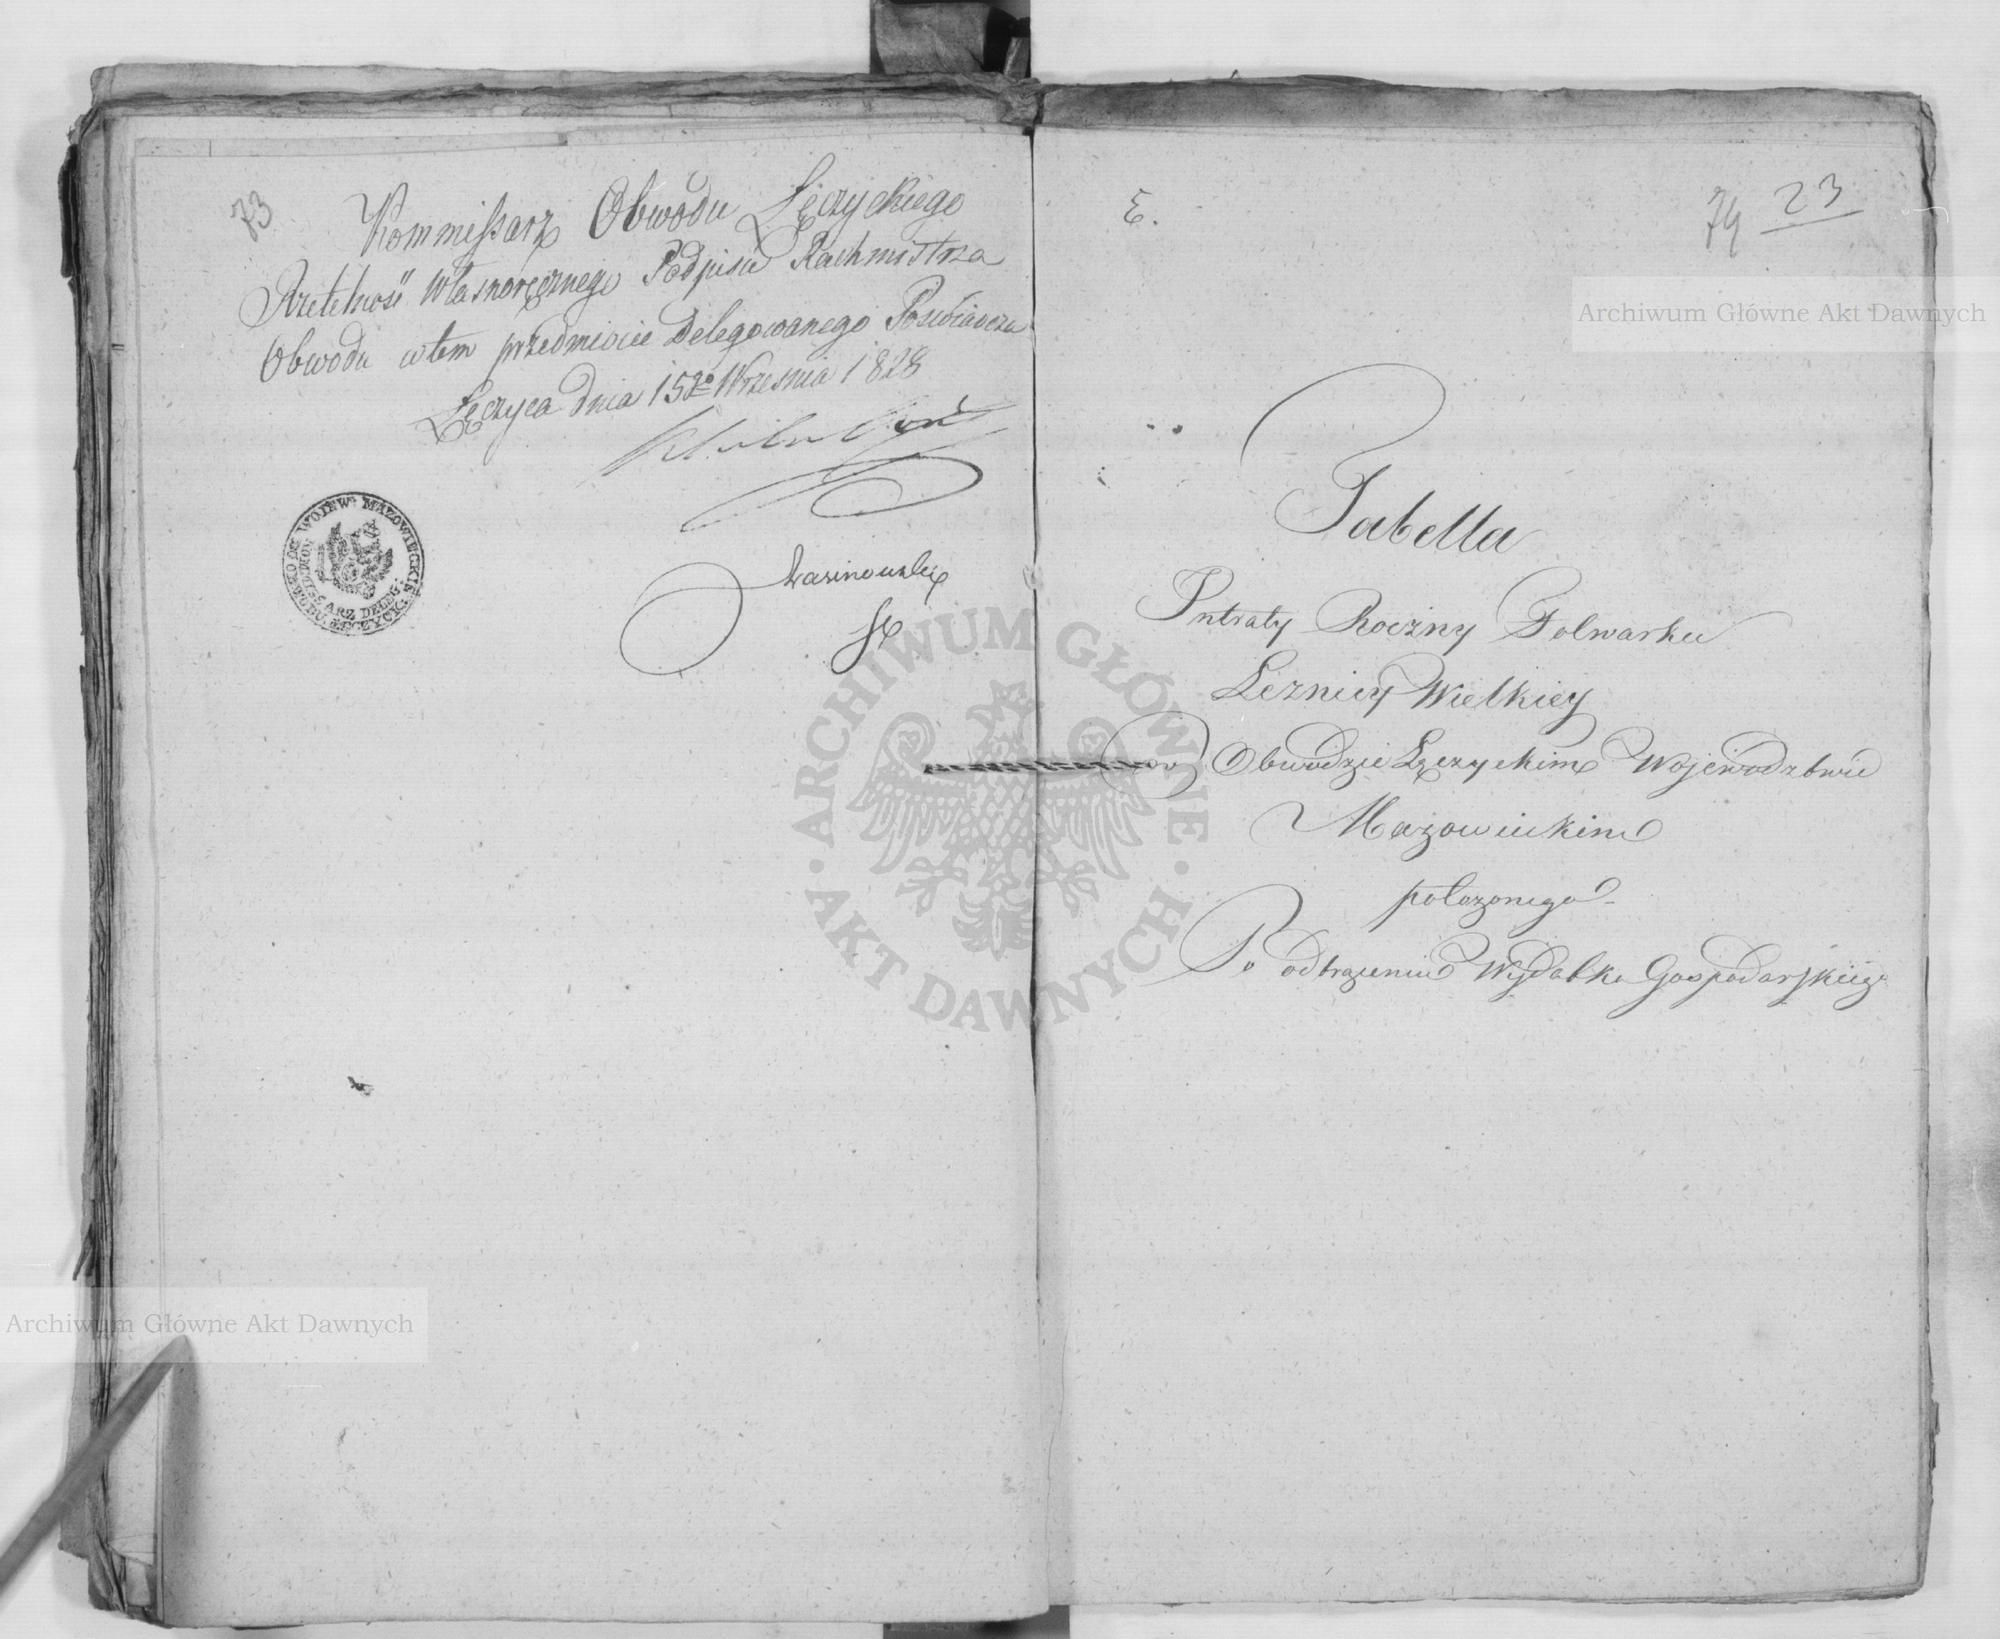 73
Kommissarz Obwodu Łęczyckiego
Rzetelność Własnoręcznego Podpisu Rachmistrza
Obwodu w tem przedmiocie Delegowanego Poświadcza
Łęczyca dnia 15go Września 1828
KOMMISSARZ DELEG: OBWODU ŁĘCZYCK: WOJEW: MAZOWIECKIE
E.
74 23
Tabella
Intraty Roczny Folwarku
Leznicy Wielkiey
w Obwodzie Łęczyckim Wojewodztwie
Mazowieckim
położonego
Po odtrąceniu Wydatku Gospodarskiego
Archiwum Główne Akt Dawnych
Archiwum Główne Akt Dawnych
ARCHIWUM GŁÓWNE · AKT DAWNYCH ·